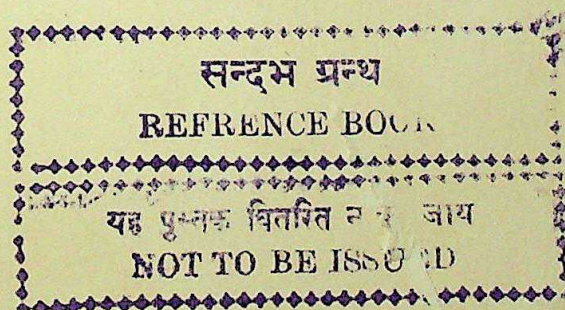 सन्दभ ग्रन्थ
REFRENCE BOOK
यह पुस्तक वितरित न जाय
NOT TO BE ISSUED